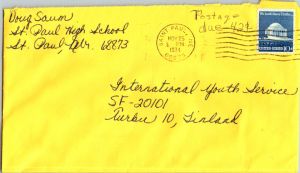 Doug Saum
St. Paul High School
St. Paul, Nbr. 68873
SAINT PAUL, NE
NOV 25
PM
1974
68873
Postage
due 42¢
International Youth Service
SF-20101
Turku 10, Finland